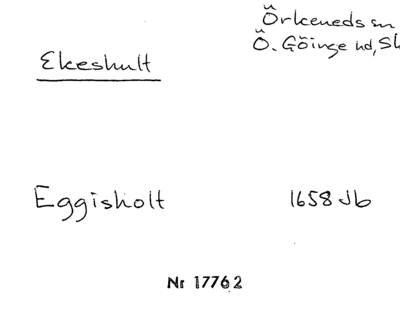 Örkeneds sn
Ekeshult
Ö. Göinge hd, Sk
Eggisholt 1658 Jb
Nr 17762